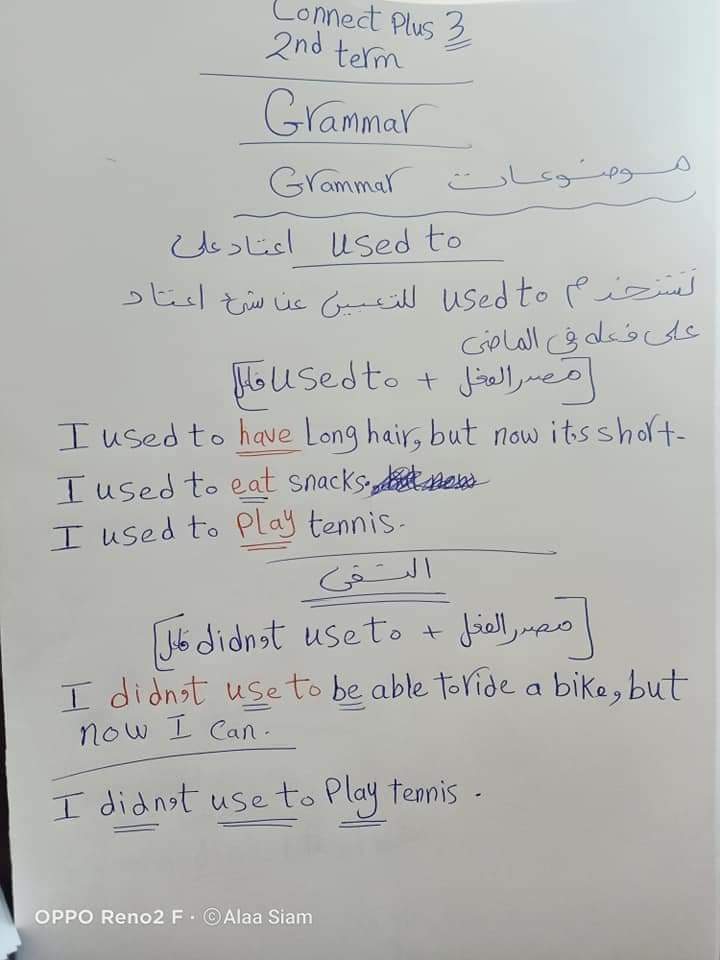 Connect Plus 3
2nd term
Grammar
Grammar موضوعات
used to اعتاد على
نستخدم used to للتعبير عن شئ اعتاد
على فعله في الماضى
[فاعل used to + مصدر الفعل]
I used to have long hair, but now it's short.
I used to eat snacks.
I used to Play tennis.
النفى
[فاعل didn't use to + مصدر الفعل]
I didn't use to be able to ride a bike, but
now I can.
I didn't use to Play tennis.
OPPO Reno2 F · ©Alaa Siam